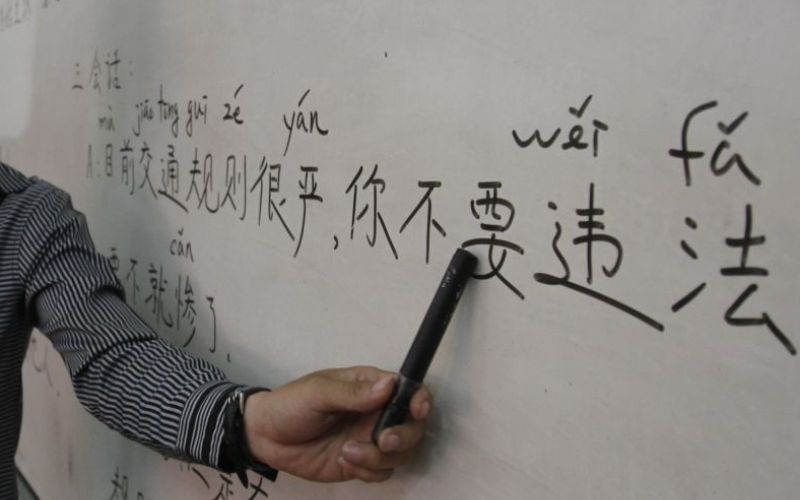 三会话:
mù jiāo tōng guī zé yán wěi fǎ
A:目前交通规则很严,你不要违法
cǎn
要不就惨了.